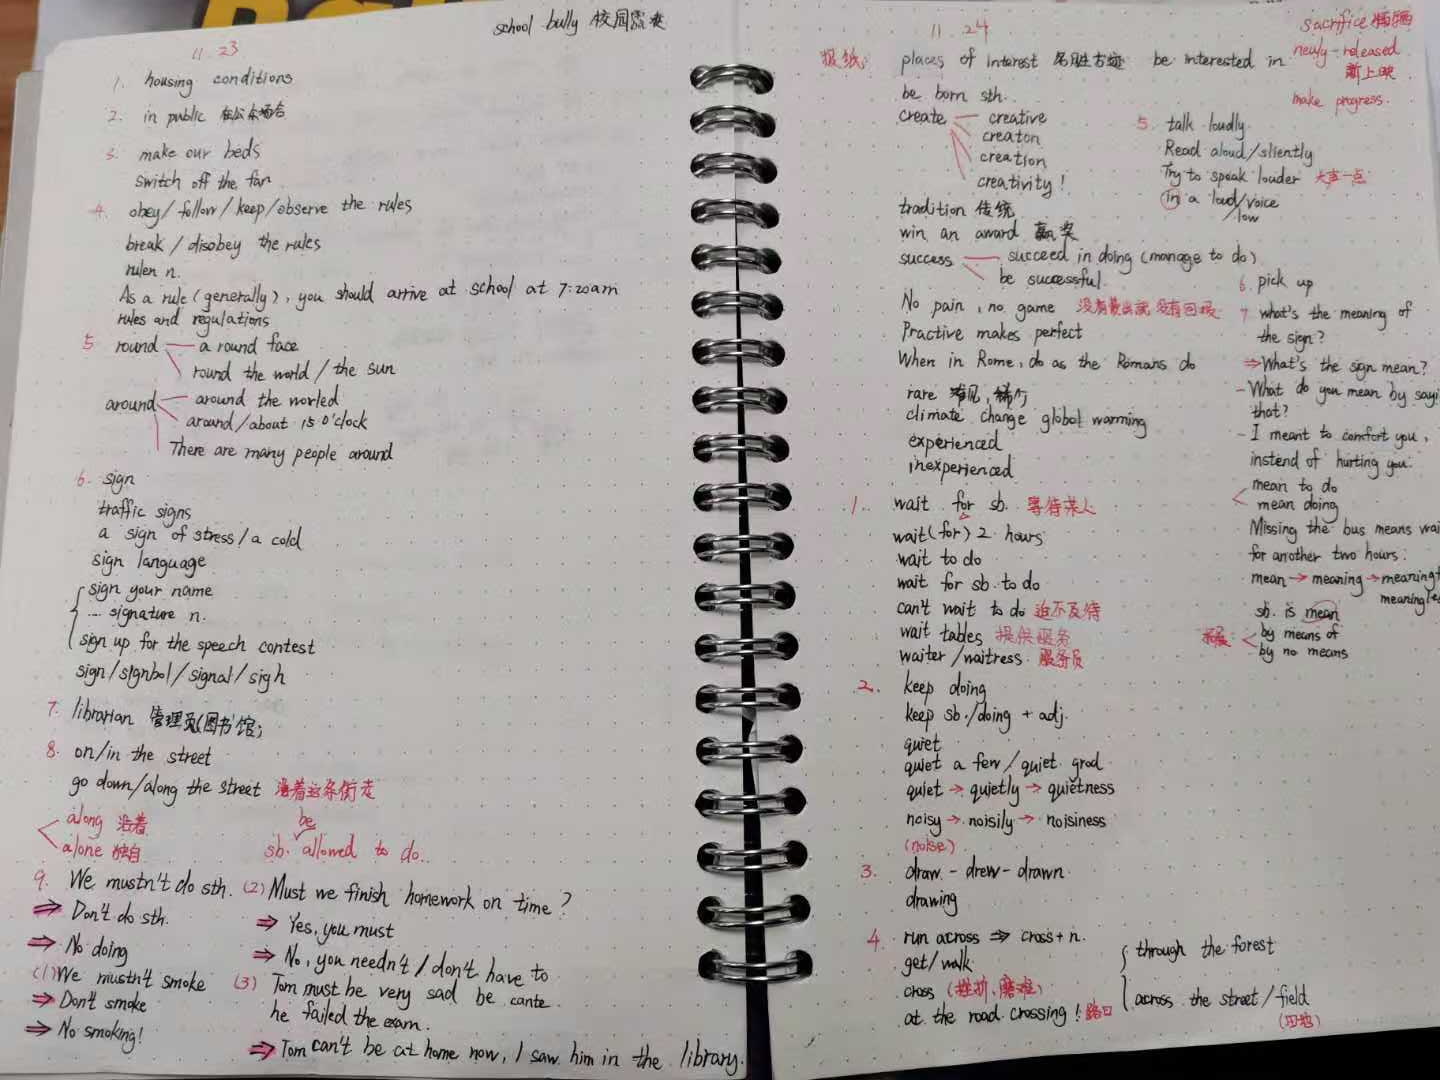 school bully 校园霸凌
11. 23
1. housing conditions
2. in public 在公共场合
3. make our beds
switch off the fan
4. obey / follow / keep / observe the rules
break / disobey the rules
rulen n.
As a rule (generally), you should arrive at school at 7:20am
rules and regulations
5 round — a round face
round the world / the sun
around — around the worled
around / about 15 o'clock
There are many people around
6. sign
traffic signs
a sign of stress / a cold
sign language
sign your name
... signature n.
sign up for the speech contest
sign / signbol / signal / sigh
7. librarian 管理员(图书馆)
8. on/in the street
go down/along the street 沿着这条街走
along 沿着
alone 独自
be
sb. allowed to do.
9. We mustn't do sth.
⇒ Don't do sth.
⇒ No doing
(1) We mustn't smoke
⇒ Don't smoke
⇒ No smoking!
(2) Must we finish homework on time?
⇒ Yes, you must
⇒ No, you needn't / don't have to
(3) Tom must be very sad be cante
he failed the exam.
⇒ Tom can't be at home now, I saw him in the library.
11. 24
sacrifice 牺牲
newly-released
新上映
make progress.
报纸: places of interest 名胜古迹 be interested in
be born sth.
create — creative
creaton
creation
creativity!
tradition 传统
win an award 赢奖
success — succeed in doing (manage to do)
be successful.
No pain, no game 没有付出就没有回报
Practive makes perfect
When in Rome, do as the Romans do
rare 罕见, 稀有
climate change global warming
experienced
inexperienced
1. wait for sb. 等待某人
wait (for) 2 hours
wait to do
wait for sb. to do
can't wait to do 迫不及待
wait tables 提供服务
waiter / waitress 服务员
2. keep doing
keep sb./doing + adj.
quiet
quiet a few / quiet grod
quiet → quietly → quietness
noisy → noisily → noisiness
(noise)
3. draw - drew - drawn
drawing
4. run across ⇒ cross + n.
get/walk
cross (挫折、磨难)
at the road crossing! 路口
through the forest
across the street / field
(田地)
5. talk loudly
Read aloud / sliently
Try to speak louder 大声一点
in a loud/voice
/low
6. pick up
7 what's the meaning of
the sign?
⇒ What's the sign mean?
- What do you mean by sayi
that?
- I meant to comfort you,
instend of hurting you.
mean to do
mean doing
Missing the bus means wai
for another two hours.
mean → meaning → meaning
meaningle
sb. is mean
拓展: by means of
by no means